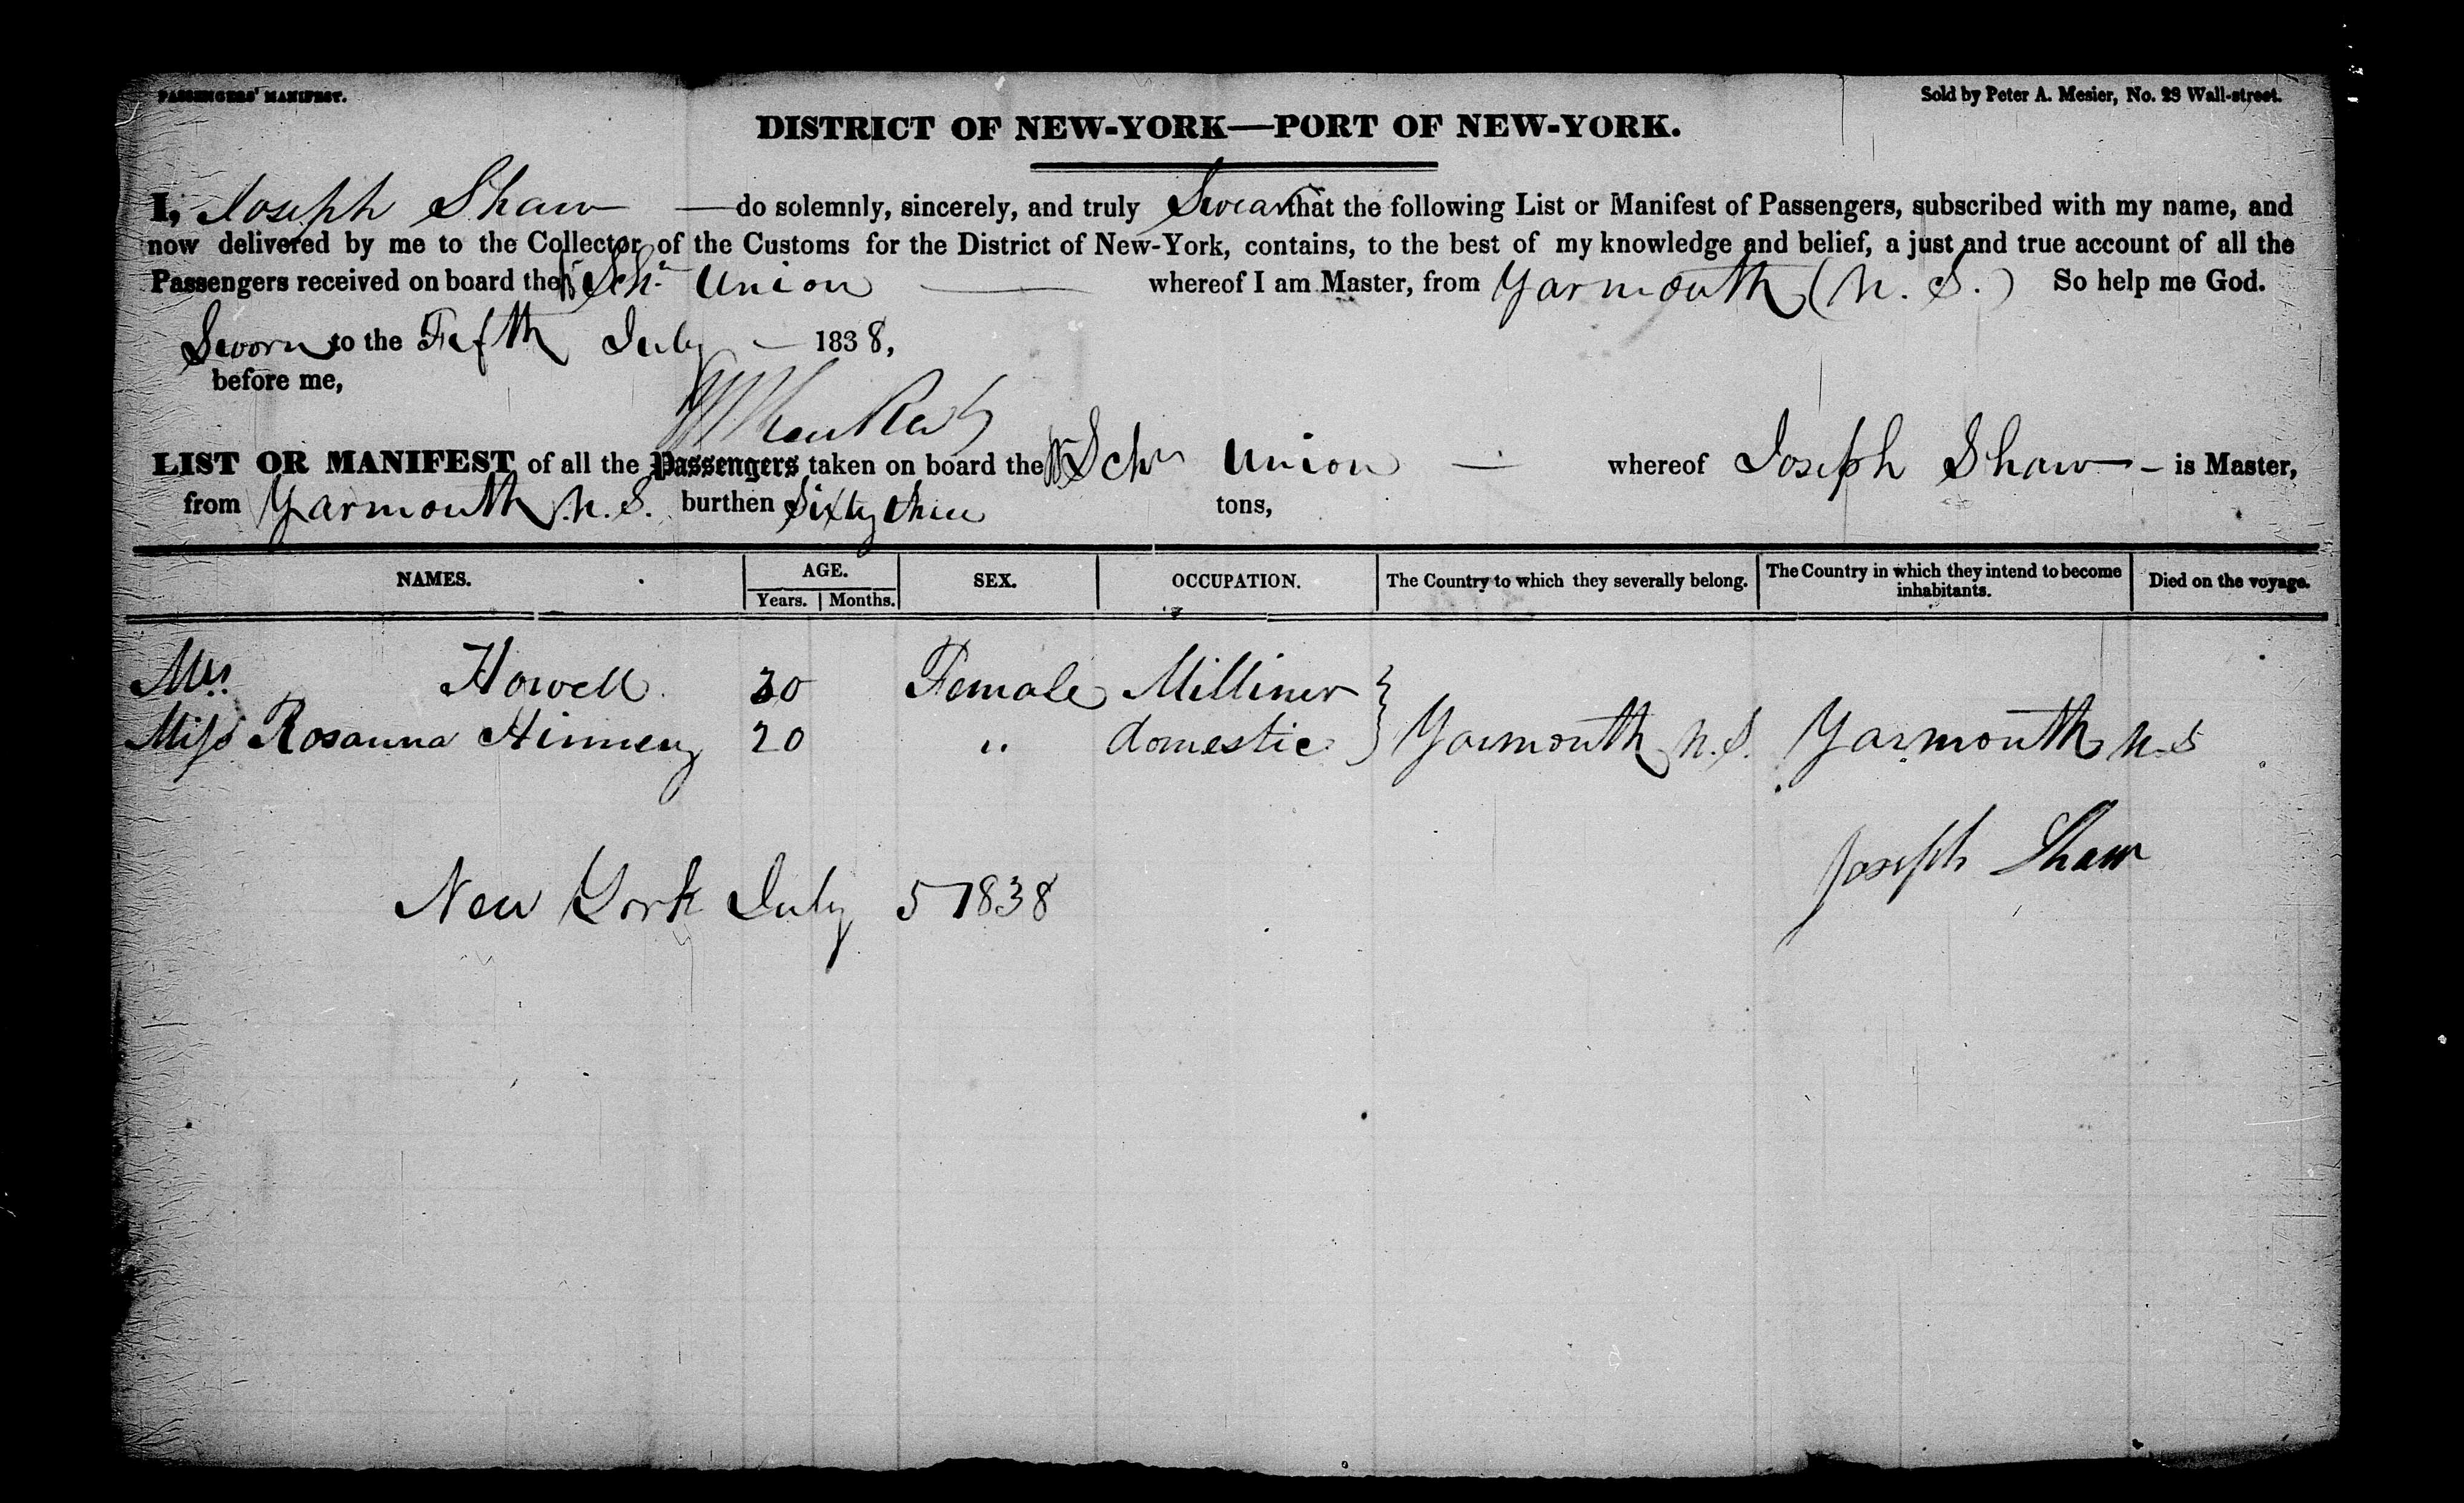 PASSENGERS' MANIFEST.
Sold by Peter A. Mesier, No. 28 Wall-street.
DISTRICT OF NEW-YORK—PORT OF NEW-YORK.
I, Joseph Shaw —do solemnly, sincerely, and truly Swear that the following List or Manifest of Passengers, subscribed with my name, and
now delivered by me to the Collector of the Customs for the District of New-York, contains, to the best of my knowledge and belief, a just and true account of all the
Passengers received on board the Br Schr Union — whereof I am Master, from Yarmouth (N. S.) So help me God.
Sworn to the Fifth July — 1838,
before me,
LIST OR MANIFEST of all the Passengers taken on board the Br Schr Union — whereof Joseph Shaw — is Master,
from Yarmouth N. S. burthen Sixty three tons,
NAMES. AGE. Years. Months. SEX. OCCUPATION. The Country to which they severally belong. The Country in which they intend to become inhabitants. Died on the voyage.
Mrs. Howell 30 Female Milliner
Miss Rosanna Hinneny 20 " domestic } Yarmouth N.S. Yarmouth N.S
Joseph Shaw
New York July 5 1838